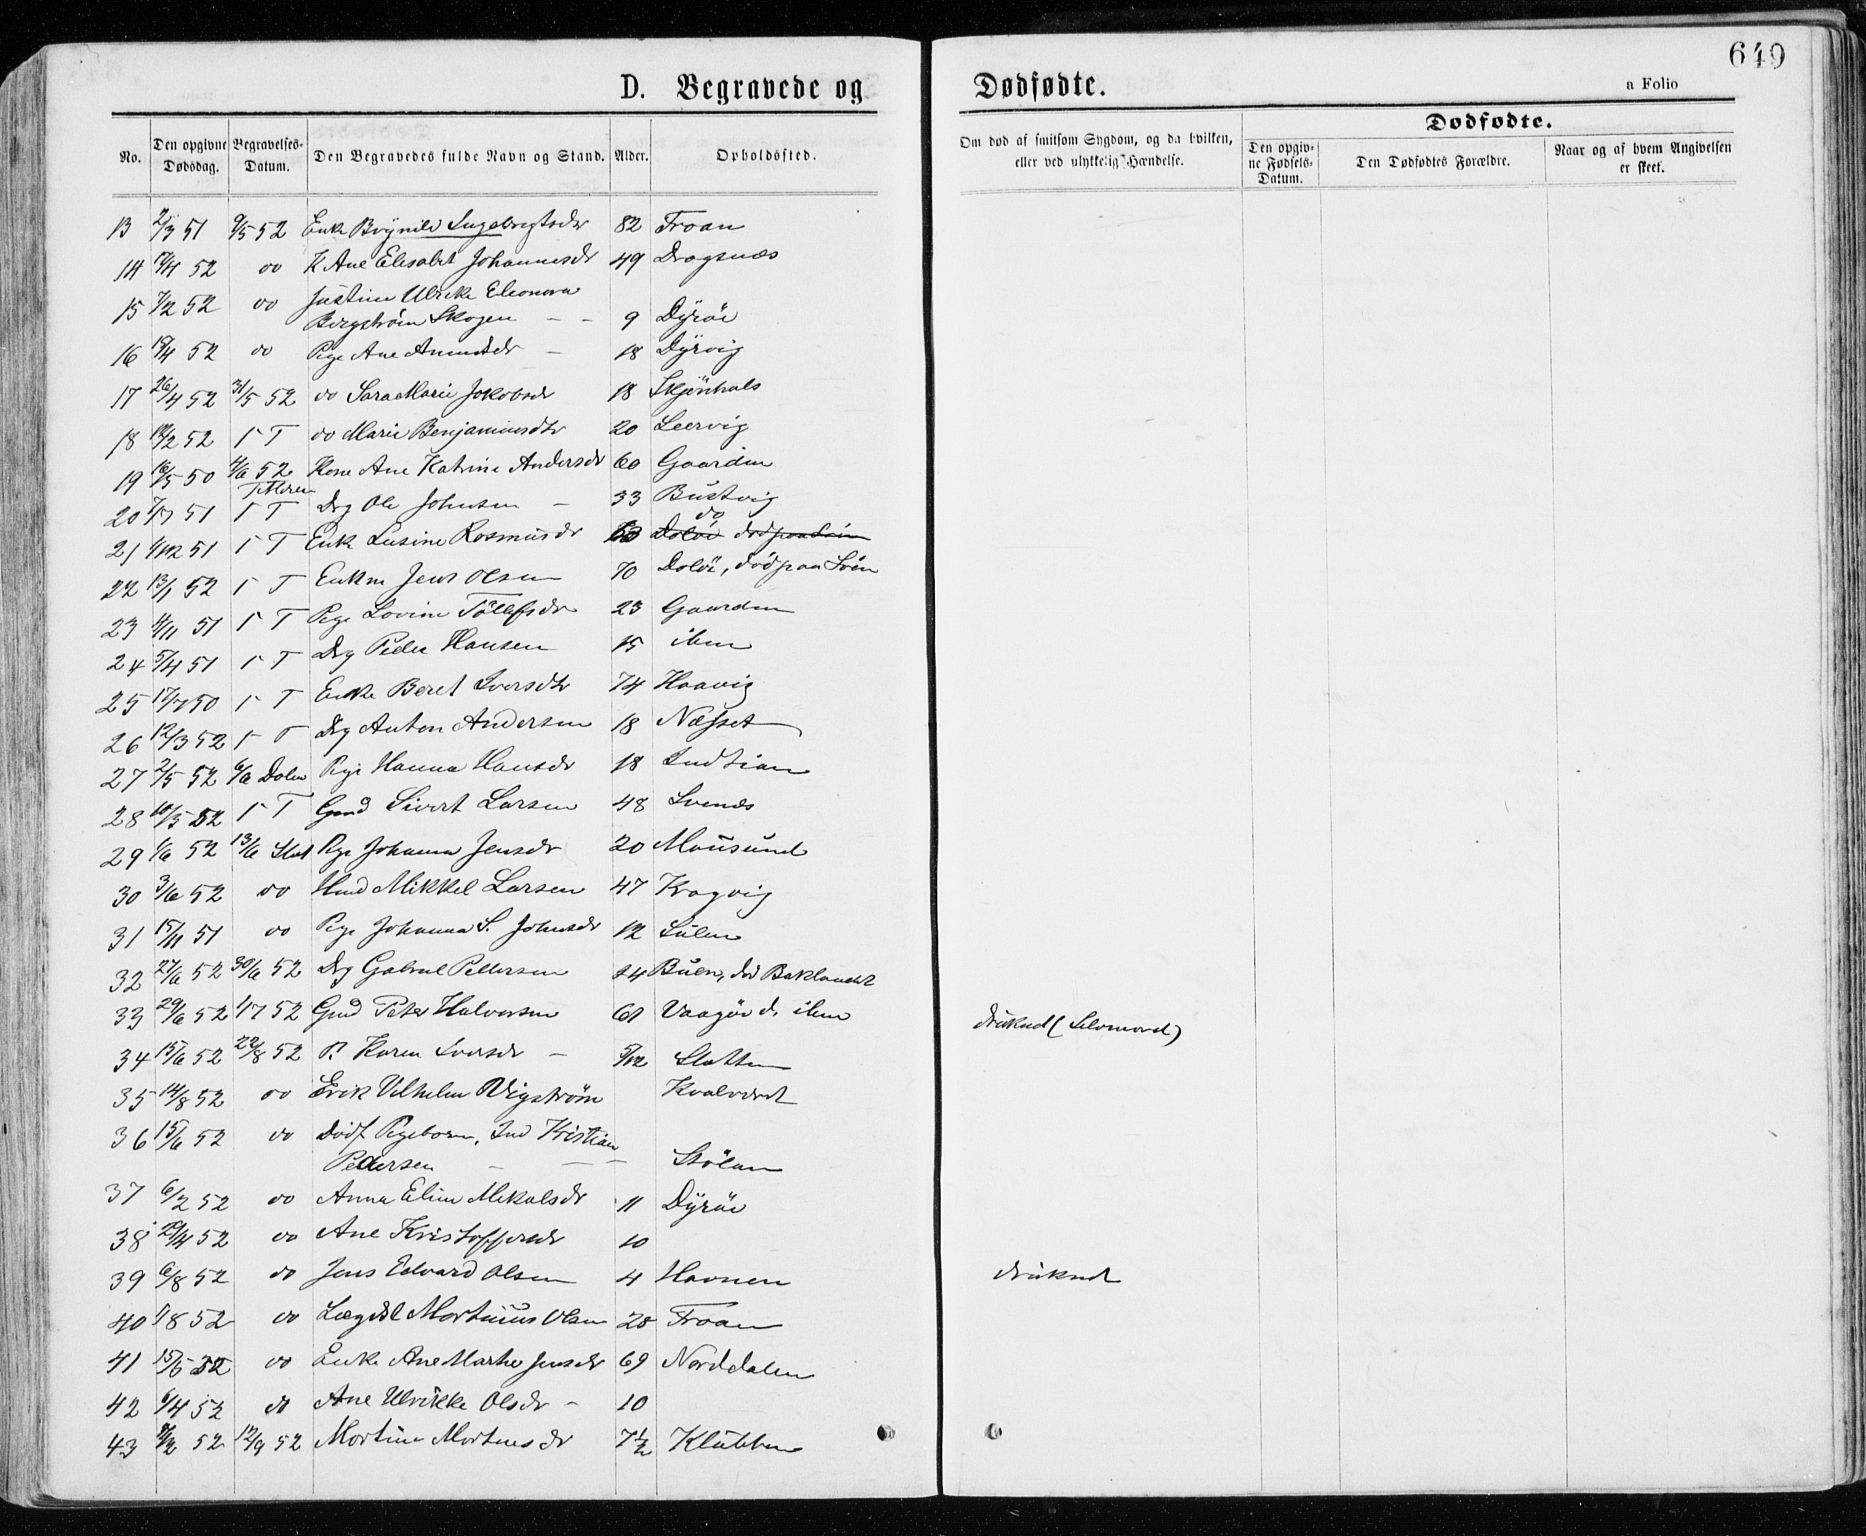 649
D. Begravede og Dødfødte.
a Folio
No. Den opgivne Dødsdag. Begravelses-Datum. Den Begravedes fulde Navn og Stand. Alder. Opholdsfted.
Om død af smitsom Sygdom, og da hvilken, eller ved ulykkelig Hændelse.
Dødfødte.
Den opgivne Fødsels-Datum. Den Dødfødtes Forældre. Naar og af hvem Angivelsen er skeet.
13 2/3 51 9/5 52 Enke Brynild Ingebrigtsdr 82 Froan
14 52 do K Ane Elisabet Johannesdr 49 Dragsnæs
15 7/2 52 do Justine Ulrike Eleonora
Bergstrøm Skogen – – 9 Dÿröe
16 19/4 52 do Pige Ane – 18 Dÿrvig
17 26/4 52 31/5 52 do Sara Marie Jokobsdr 18 Skjönhals
18 52 T do Marie Benjaminsdtr 20 Leervig
19 16/5 50 4/6 52 Kone Ane Katrine Andersdr 60 Gaarden
20 51 T Drg Ole Johnsen – 33 Bustvig
21 51 T Enke Lusine Rasmusdr do
22 13/1 52 T Enkm Jens Olsen 70 Dolöe, död paa Söen
23 4/11 51 T Pige Lovine Töllefsdr 23 Gaarden
24 5/4 51 T Drg Peder Hansen 15 ibm
25 17/7 50 T Enke Beret Iversdtr 74 Haavig
26 12/3 52 T Drg Anton Andersen 18 Næsset
27 2/5 52 6/6 Dolm Pige Hanna Hansdr 18 Indtian
28 10/5 52 T Gmd Sivert Larsen 48 Svenes
29 1/6 52 13/6 Slet Pige Johanna Jensdr 20 Mausund
30 3/6 52 do Hmd Mikkel Larsen 47 Kragvig
31 15/11 51 do Pige Johanna S. Johnsdr 12 Sulen
32 27/6 52 30/6 52 Drg Gabriel Pettersen 14 Buen, död Baklandet
33 29/6 52 4/7 52 Gmd Peter Halvorsen 61 Vaagöe d. ibm druknet (Selvmord)
34 15/6 52 22/8 52 P. Karen Iversdr – 5/12 Sletten
35 14/8 52 do Erik Vilhelm Vigström Kvalværet
36 15/6 52 do Dödf Pigebarn, Ind Kristian
Pedersen – – – Stölan
37 6/2 52 do Anna Eline Mikalsdr 11 Dÿröe
38 29/4 52 do Ane Kristoffersdr 10
39 6/8 52 do Jens Edvard Olsen 4 Havnen druknet
40 1/8 52 do Lægdsl Martinus Olsen 28 Froan
41 15/5 52 do Enke Ane Marthe Jensdr 69 Norddalen
42 6/4 52 do Ane Ulrikke Olsdr – 10
43 52 12/9 52 Martine Mortensdr 7½ Klubben